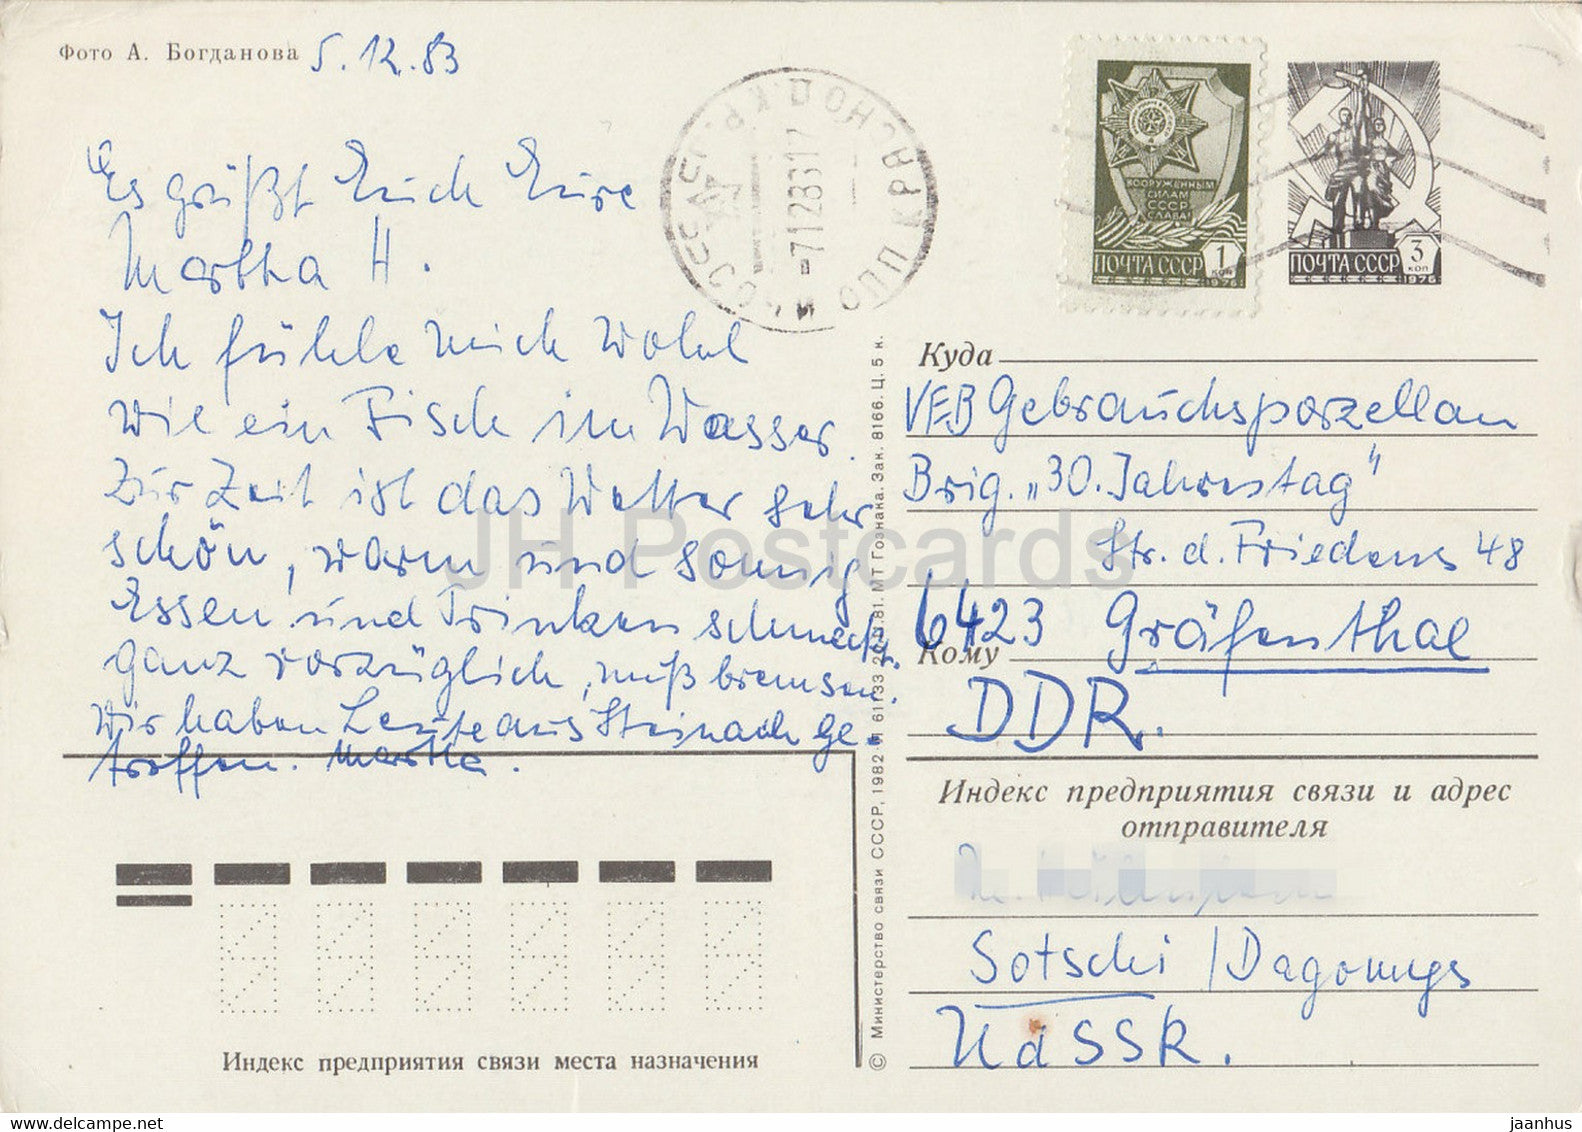 Фото А. Богданова 5.12.83
Es grüßt Euch Eure
Martha H.
Ich fühle mich wohl
wie ein Fisch im Wasser.
Zur Zeit ist das Wetter sehr
schön, warm und sonnig
Essen und Trinken schmeckt
ganz vorzüglich, muß bremsen.
Wir haben Leute aus Steinach ge-
troffen. Martha.
Индекс предприятия связи места назначения
© Министерство связи СССР, 1982
МТ Гознака. Зак. 8166. Ц. 5 к.
-7128317
ВООРУЖЕННЫМ
СИЛАМ
СССР
СЛАВА!
1
КОП
ПОЧТА СССР
1976
3
КОП
ПОЧТА СССР
1976
Куда
VEB Gebrauchsporzellan
Brig. „30. Jahrestag"
Str. d. Friedens 48
6423 Gräfenthal
Кому
DDR.
Индекс предприятия связи и адрес
отправителя
Sotschi / Dagomys
UdSSR.
JH Postcards
www.delcampe.net
jaanhus